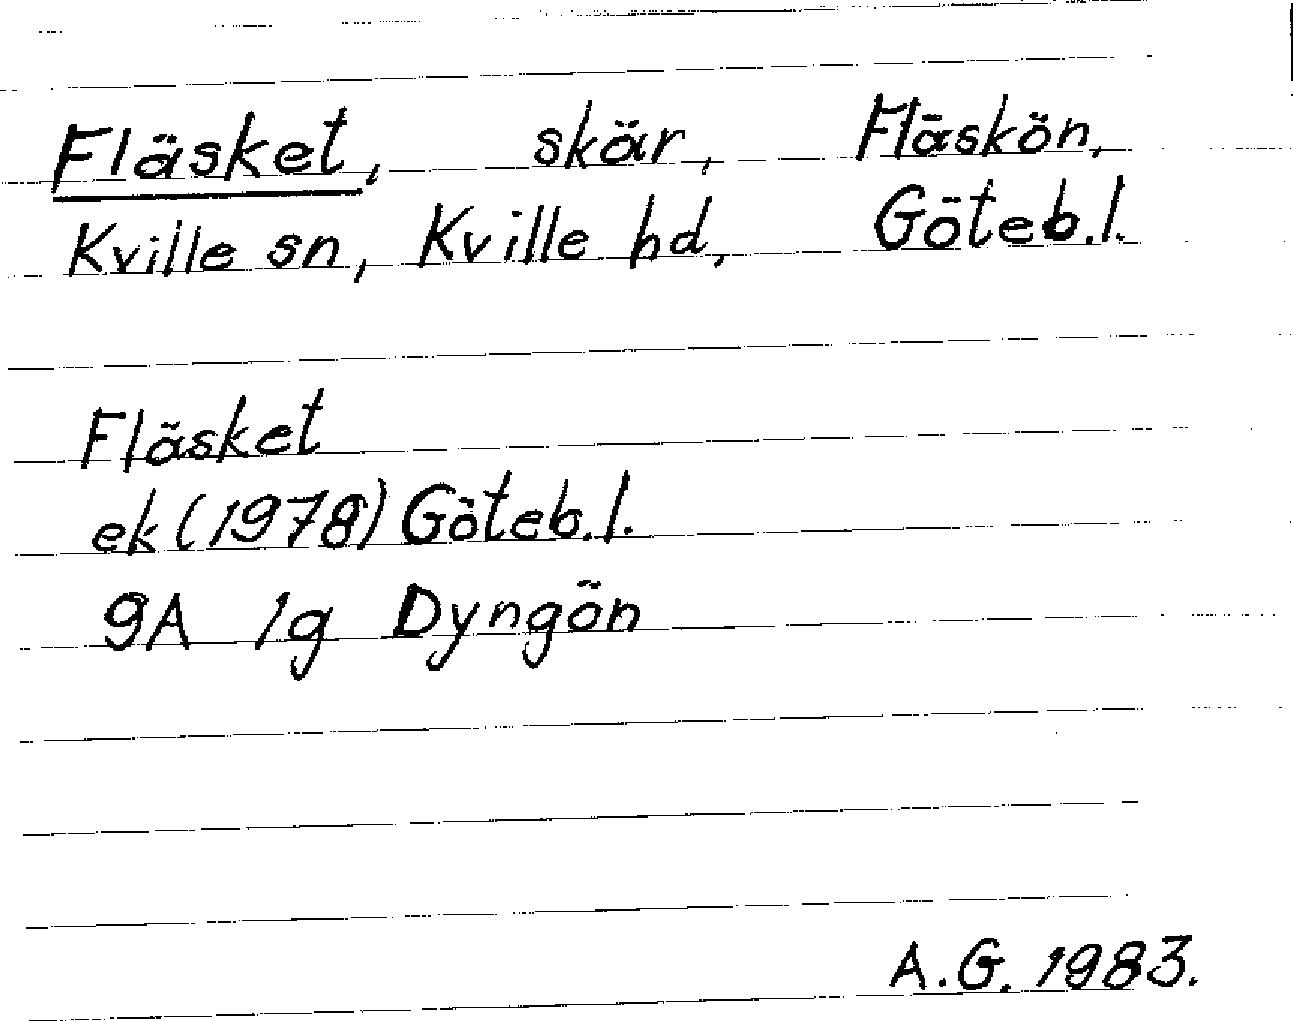 Fläsket, skär, Fläskön,
Kville sn, Kville hd, Göteb.l.
Fläsket
ek (1978) Göteb.l.
9A 1g Dyngön
A.G. 1983.